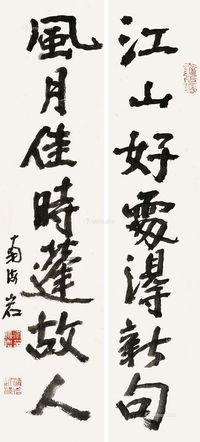 江山好處得新句
風月佳時逢故人
南海岩